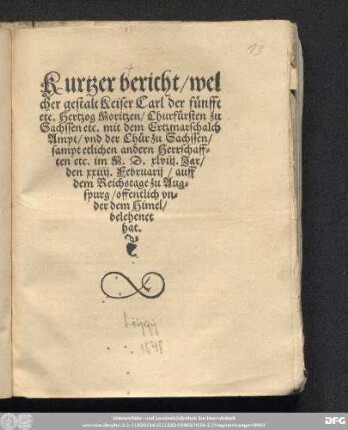 13
Kurtzer bericht / wel
cher gestalt Keiser Carl der fünffte
etc. Hertzog Moritzen / Churfürsten zu
Sachssen etc. mit dem Ertzmarschalch
Ampt / vnd der Chür zu Sachssen /
sampt etlichen andern Herrschaff-
ten etc. im M. D. xlviij. Jar /
den xxiiij. Februarij / auff
dem Reichstage zu Aug-
spurg / offentlich vn-
der dem Himel /
belehenet
hat.
1548
Universitäts- und Landesbibliothek Sachsen-Anhalt